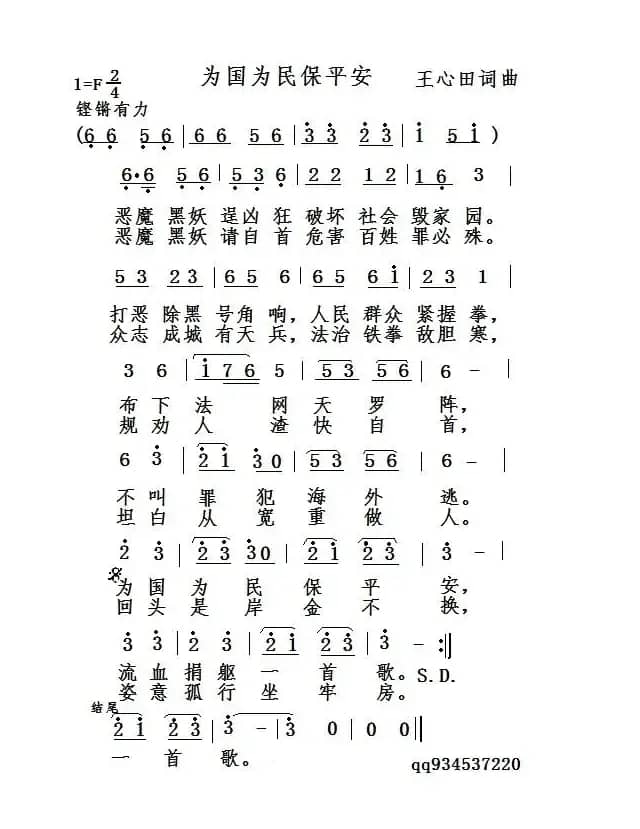 为国为民保平安 王心田词曲
1=F 2/4
铿锵有力
(6 6 5 6 | 6 6 5 6 | 3 3 2 3 | 1 5 1 )
6·6 5 6 | 5 3 6 | 2 2 1 2 | 1 6 3 |
恶魔 黑妖 逞凶 狂 破坏 社会 毁家 园。
恶魔 黑妖 请自 首 危害 百姓 罪必 殊。
5 3 2 3 | 6 5 6 | 6 5 6 1 | 2 3 1 |
打恶 除黑 号角 响，人民 群众 紧握 拳，
众志 成城 有天 兵，法治 铁拳 敌胆 寒，
3 6 | 1 7 6 5 | 5 3 5 6 | 6 – |
布 下 法 网 天 罗 阵，
规 劝 人 渣 快 自 首，
6 3 | 2 1 3 0 | 5 3 5 6 | 6 – |
不 叫 罪 犯 海 外 逃。
坦 白 从 宽 重 做 人。
2 3 | 2 3 3 0 | 2 1 2 3 | 3 – |
为 国 为 民 保 平 安，
回 头 是 岸 金 不 换，
3 3 | 2 3 | 2 1 2 3 | 3 – :||
流 血 捐 躯 一 首 歌。S.D.
姿 意 孤 行 坐 牢 房。
结尾
2 1 2 3 | 3 – | 3 0 | 0 0 ||
一 首 歌。
qq934537220